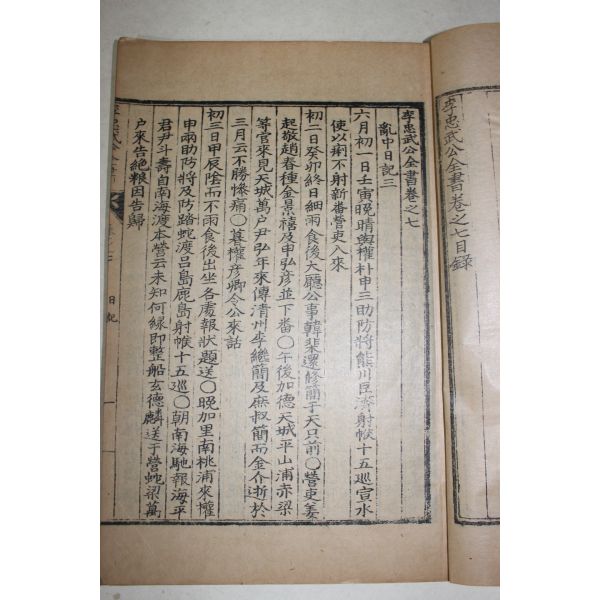 李忠武公全書卷之七目錄
李忠武公全書卷之七
亂中日記三
六月初一日壬寅晚晴與權朴申三助防將熊川巨濟射帿十五巡宣水
使以痢不射新番營吏入來
初二日癸卯終日細雨食後大廳公事韓棐還修簡于天只前〇營吏姜
起敬趙春種金景禧及申弘彦並下番〇午後加德天城平山浦赤梁
等官來見天城萬户尹弘年來傳清州李繼簡及庶叔簡而金介逝於
三月云不勝慘痛〇暮權彦卿令公來話
初三日甲辰陰而不雨食後出坐各處報狀題送〇晚加里南桃浦來權
申兩助防將及防踏蛇渡呂島鹿島射帿十五巡〇朝南海馳報海平
君尹斗壽自南海渡本營云未知何緣即整船玄德麟送于營蛇梁萬
户來告絶粮因告歸
李忠武公全書
日記